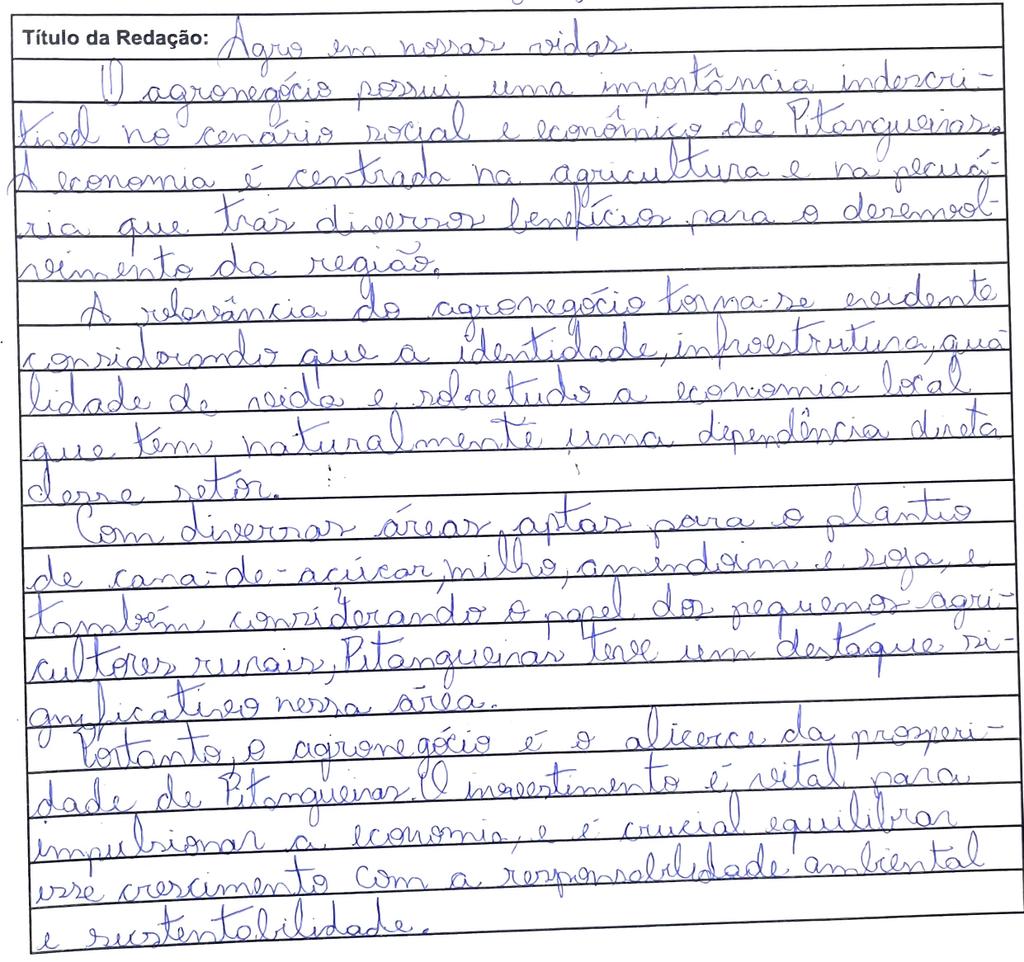 Título da Redação: Agro em nossas vidas.
O agronegócio possui uma importância indescri-
tível no cenário social e econômico de Pitangueiras.
A economia é centrada na agricultura e na pecuá-
ria que trás diversos benefícios para o desenvol-
vimento da região.
A relevância do agronegócio torna-se evidente
considerando que a identidade, infraestrutura, qua
lidade de vida e sobretudo a economia local
que tem naturalmente uma dependência direta
desse setor.
Com diversas áreas aptas para o plantio
de cana-de-açúcar, milho, amendoim e soja, e
também considerando o papel dos pequenos agri-
cultores rurais, Pitangueiras teve um destaque si-
gnificativo nessa área.
Portanto, o agronegócio é o alicerce da prosperi-
dade de Pitangueiras. O investimento é vital para
impulsionar a economia, e é crucial equilibrar
esse crescimento com a responsabilidade ambiental
e sustentabilidade.